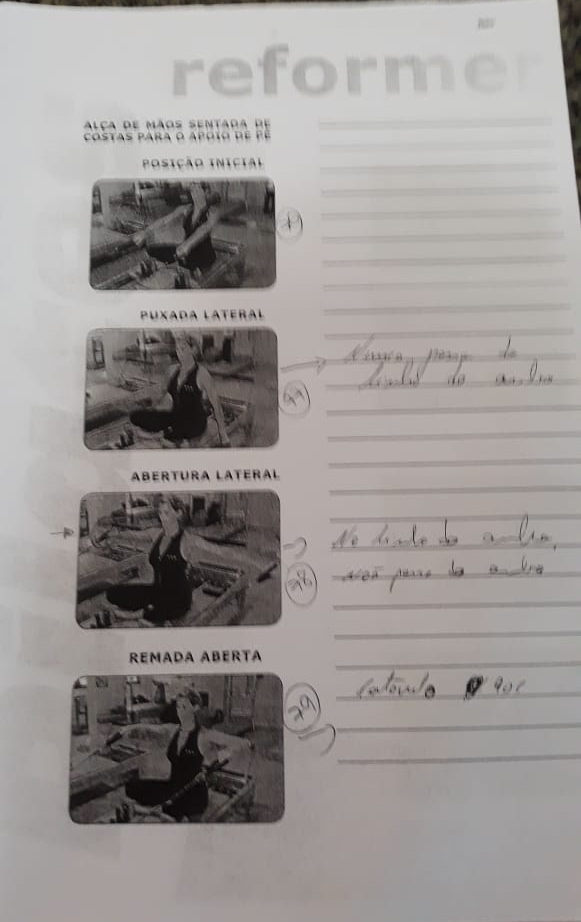 reformer
ALÇA DE MÃOS SENTADA DE
COSTAS PARA O APOIO DE PÉ
POSIÇÃO INICIAL
PUXADA LATERAL
Nunca passa da
linha do ombro
ABERTURA LATERAL
Na linha do ombro,
não passa do ombro
78
REMADA ABERTA
79
Cotovelo 90º